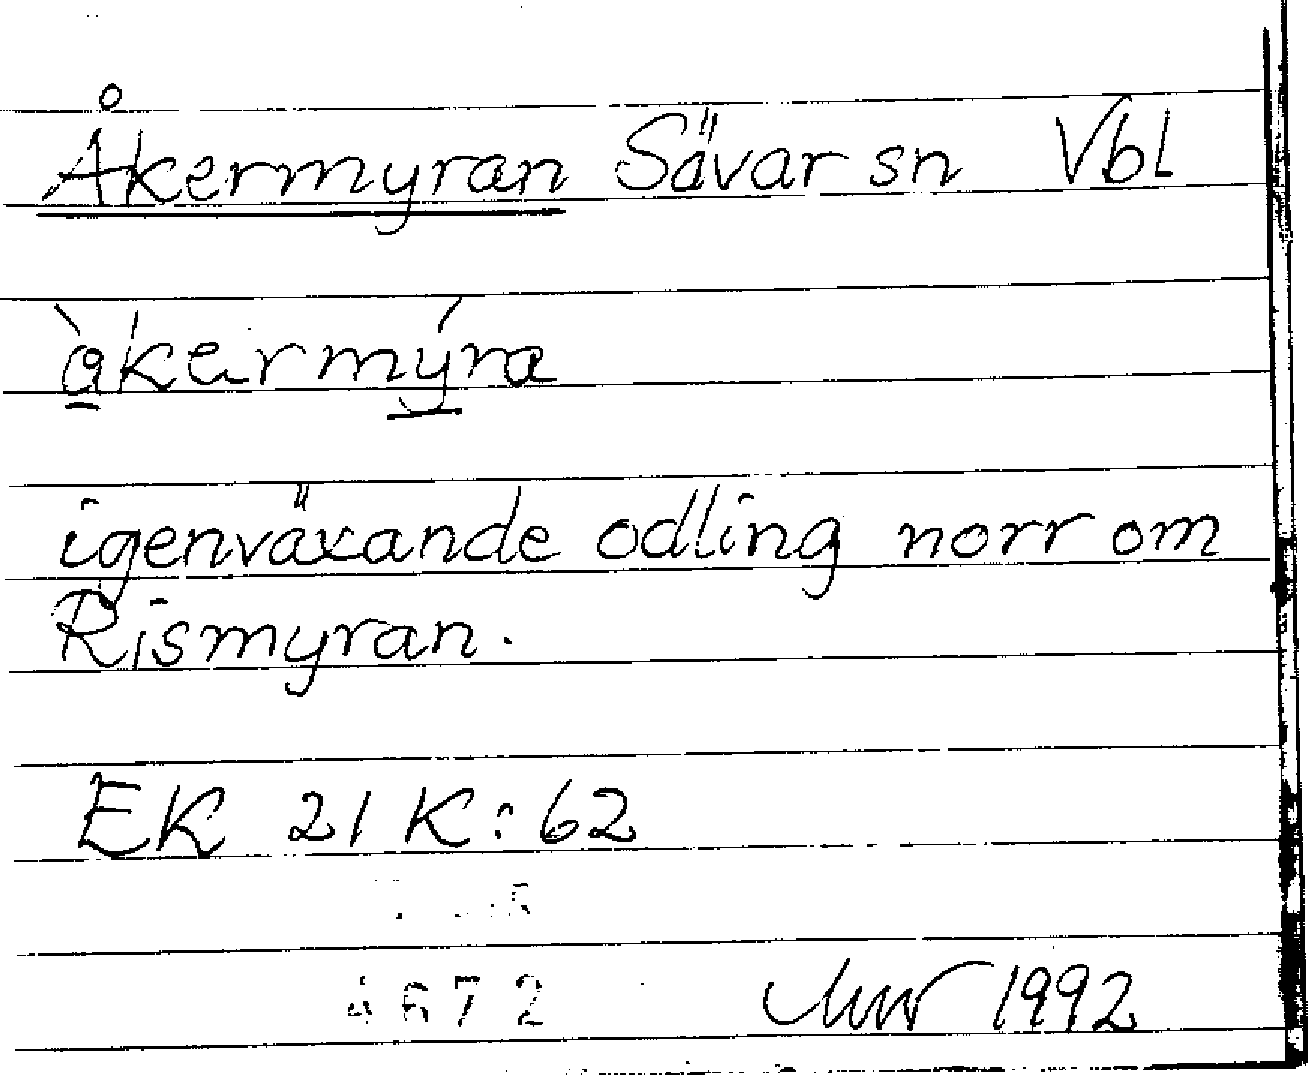 Åkermyran Sävar sn Vbl
åkermýra
igenväxande odling norr om
Rismyran.
EK 21 K:62
4672
1992